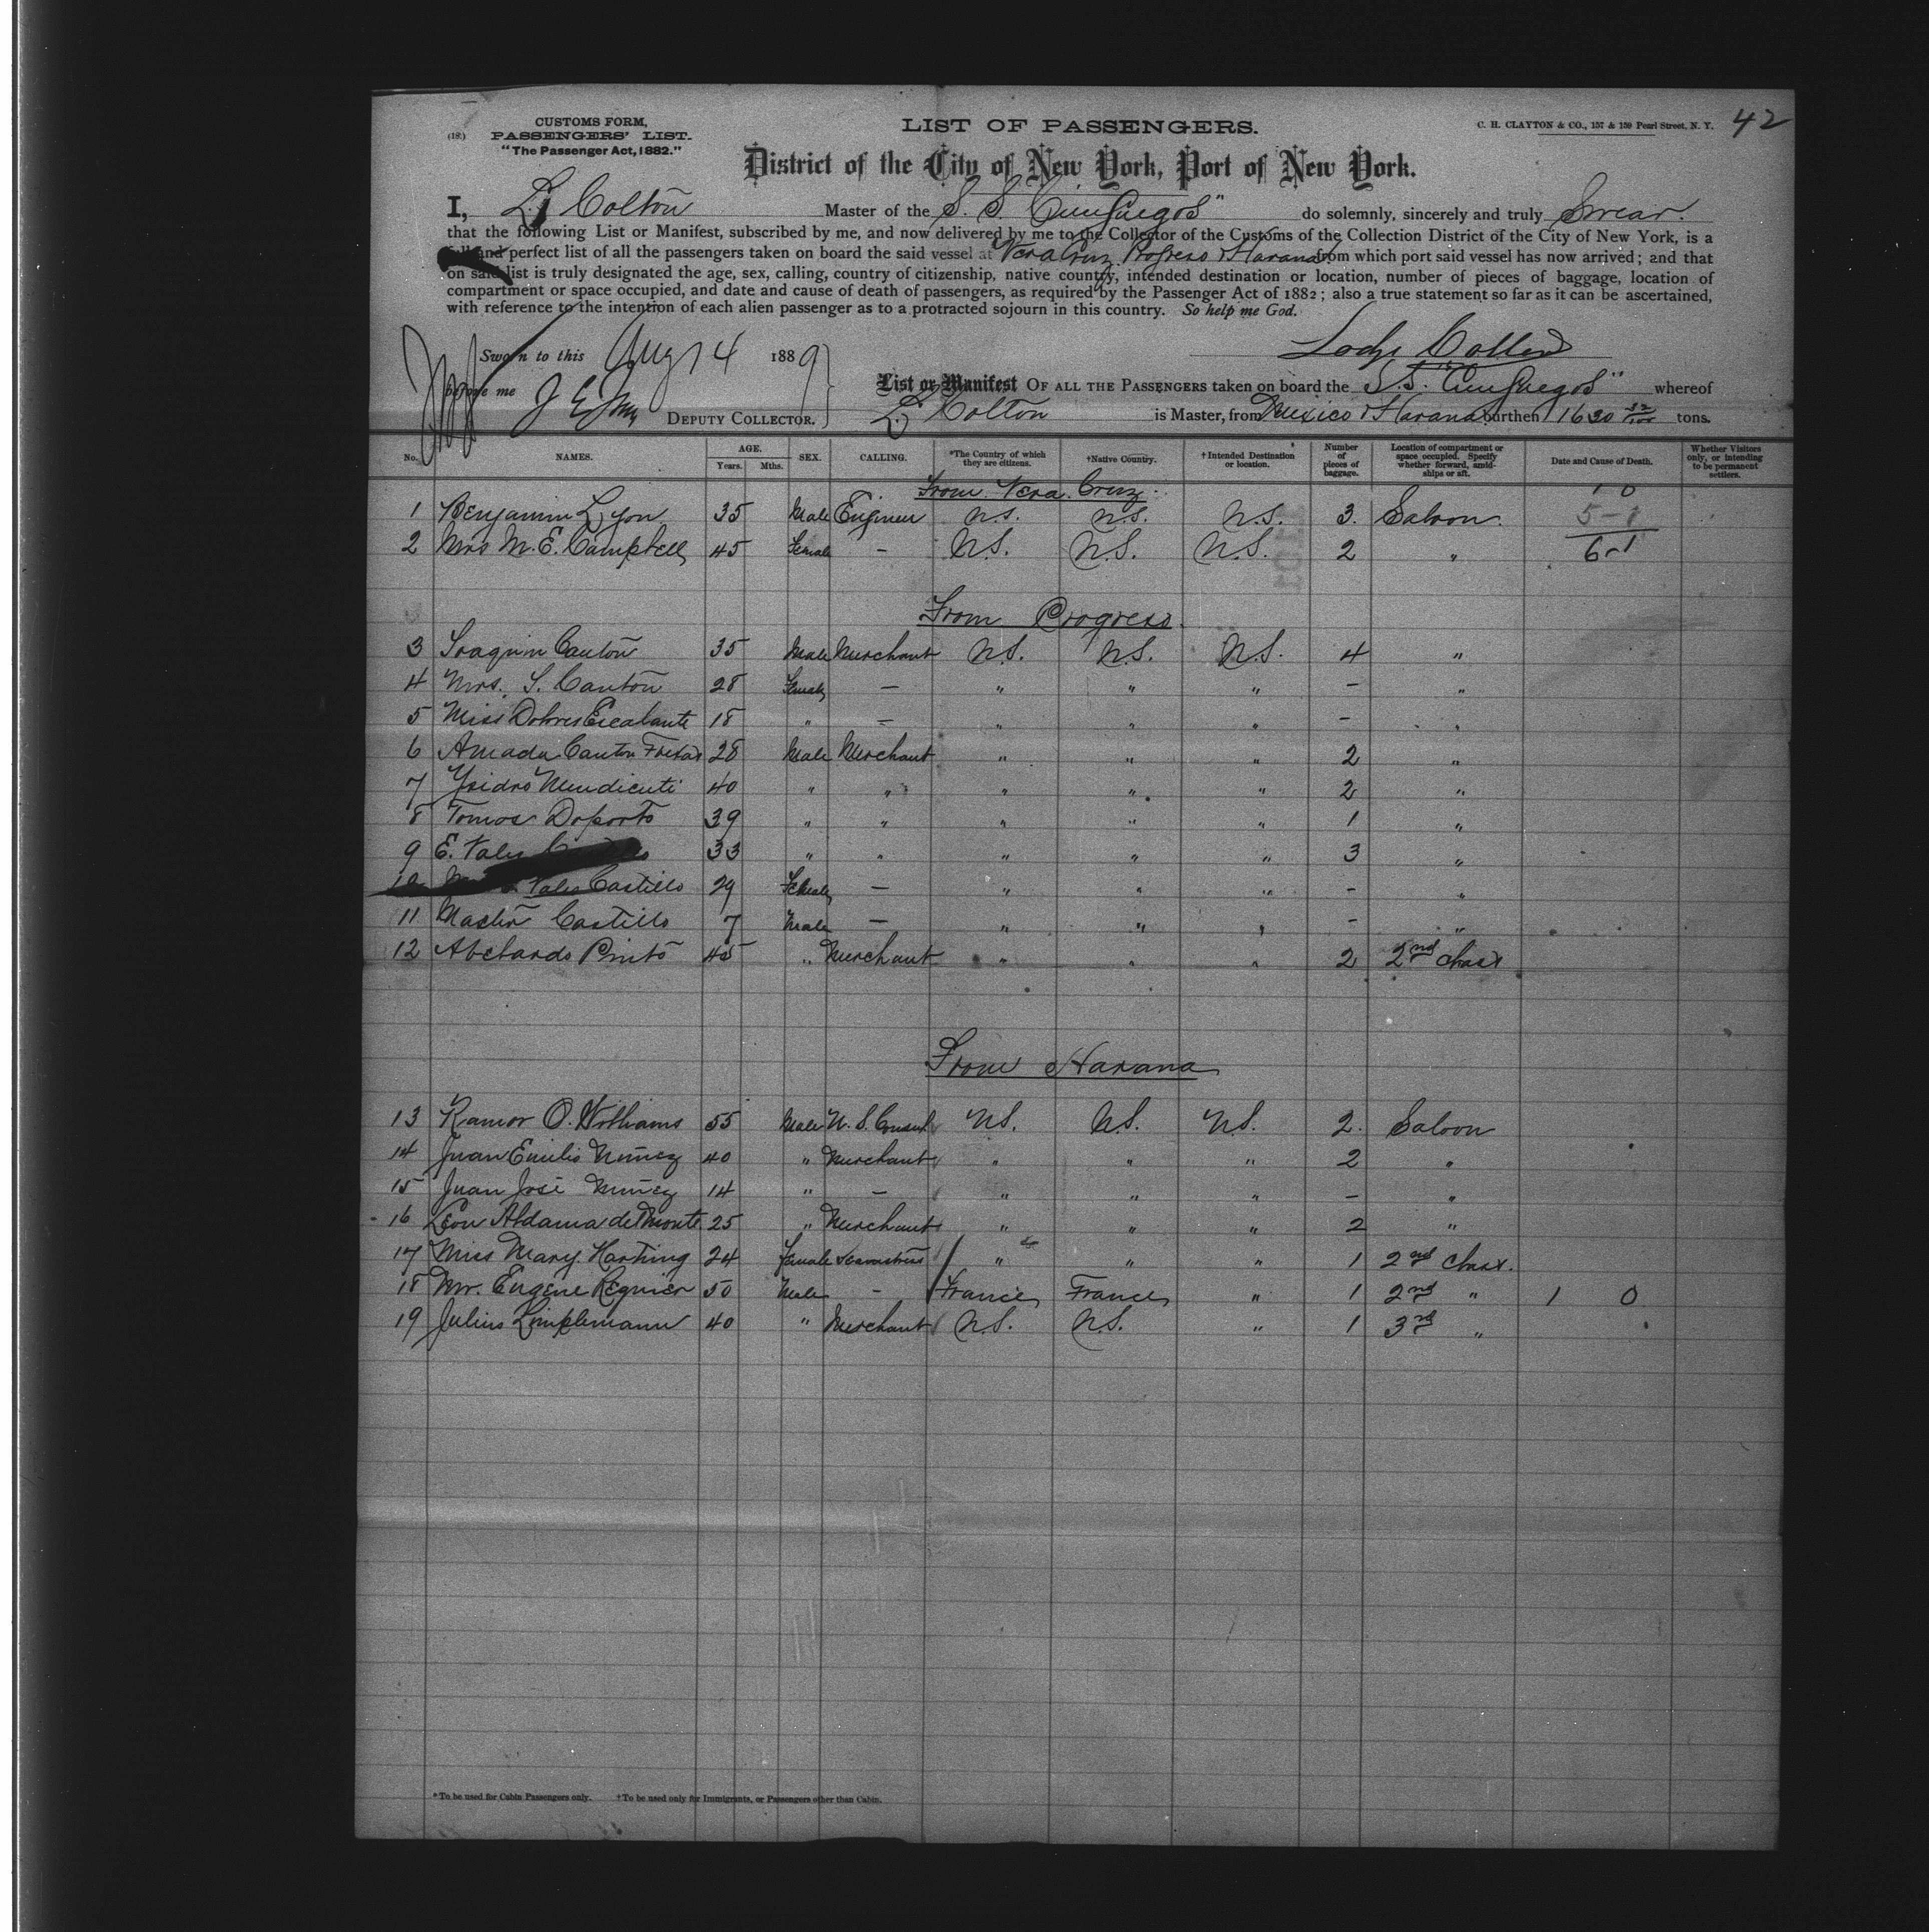 42
CUSTOMS FORM,
(18.) PASSENGERS' LIST.
"The Passenger Act, 1882."
LIST OF PASSENGERS.
C. H. CLAYTON & CO., 157 & 159 Pearl Street, N. Y.
District of the City of New York, Port of New York.
I, L. Colton Master of the S. S. "Cienfuegos" do solemnly, sincerely and truly Swear.
that the following List or Manifest, subscribed by me, and now delivered by me to the Collector of the Customs of the Collection District of the City of New York, is a
full and perfect list of all the passengers taken on board the said vessel at Vera Cruz Progreso & Havana from which port said vessel has now arrived; and that
on said list is truly designated the age, sex, calling, country of citizenship, native country, intended destination or location, number of pieces of baggage, location of
compartment or space occupied, and date and cause of death of passengers, as required by the Passenger Act of 1882; also a true statement so far as it can be ascertained,
with reference to the intention of each alien passenger as to a protracted sojourn in this country. So help me God.
Sworn to this Aug 14 1889
before me J E DEPUTY COLLECTOR.
Colton
List or Manifest OF ALL THE PASSENGERS taken on board the S.S. "Cienfuegos" whereof
L. Colton is Master, from Mexico & Havana burthen 1630 32/100 tons.
No. NAMES. AGE. Years. Mths. SEX. CALLING. *The Country of which they are citizens. †Native Country. †Intended Destination or location. Number of pieces of baggage. Location of compartment or space occupied. Specify whether forward, amidships or aft. Date and Cause of Death. Whether Visitors only, or intending to be permanent settlers.
From Vera Cruz 1 0
1 Benjamin Lyon 35 Male Engineer U.S. U.S. U.S. 3. Saloon. 5-1
2 Mrs M. E. Campbell 45 Female - U.S. U.S. U.S. 2 " 6-1
From Progreso
3 Joaquin Canton 35 Male Merchant U.S. U.S. U.S. 4 "
4 Mrs. S. Canton 28 Female - " " " - "
5 Miss Dolores Escalante 18 " - " " " - "
6 Amada Canton 28 Male Merchant " " " 2 "
7 Ysidro Mendicuti 40 " " " " " 2 "
8 Tomas Doporto 39 " " " " " 1 "
9 E. Vales 33 " " " " " 3 "
10 Vales Castillo 29 Female - " " " - "
11 Master Castillo 7 Male - " " " - "
12 Abelardo Pinto 45 " Merchant " " " 2 2nd Class
From Havana
13 Ramon O. Williams 55 Male U.S. Consul U.S. U.S. U.S. 2. Saloon
14 Juan Emilio Nuñez 40 " Merchant " " " 2 "
15 Juan José Nuñez 14 " - " " " - "
16 Leon Aldama del Monte 25 " Merchant " " " 2 "
17 Miss Mary Harting 24 Female Seamstress " " " 1 2nd Class.
18 Mr. Eugene Regnier 50 Male - France France " 1 2nd " 1 0
19 Julius 40 " Merchant U.S. U.S. " 1 3rd "
*To be used for Cabin Passengers only. †To be used only for Immigrants, or Passengers other than Cabin.